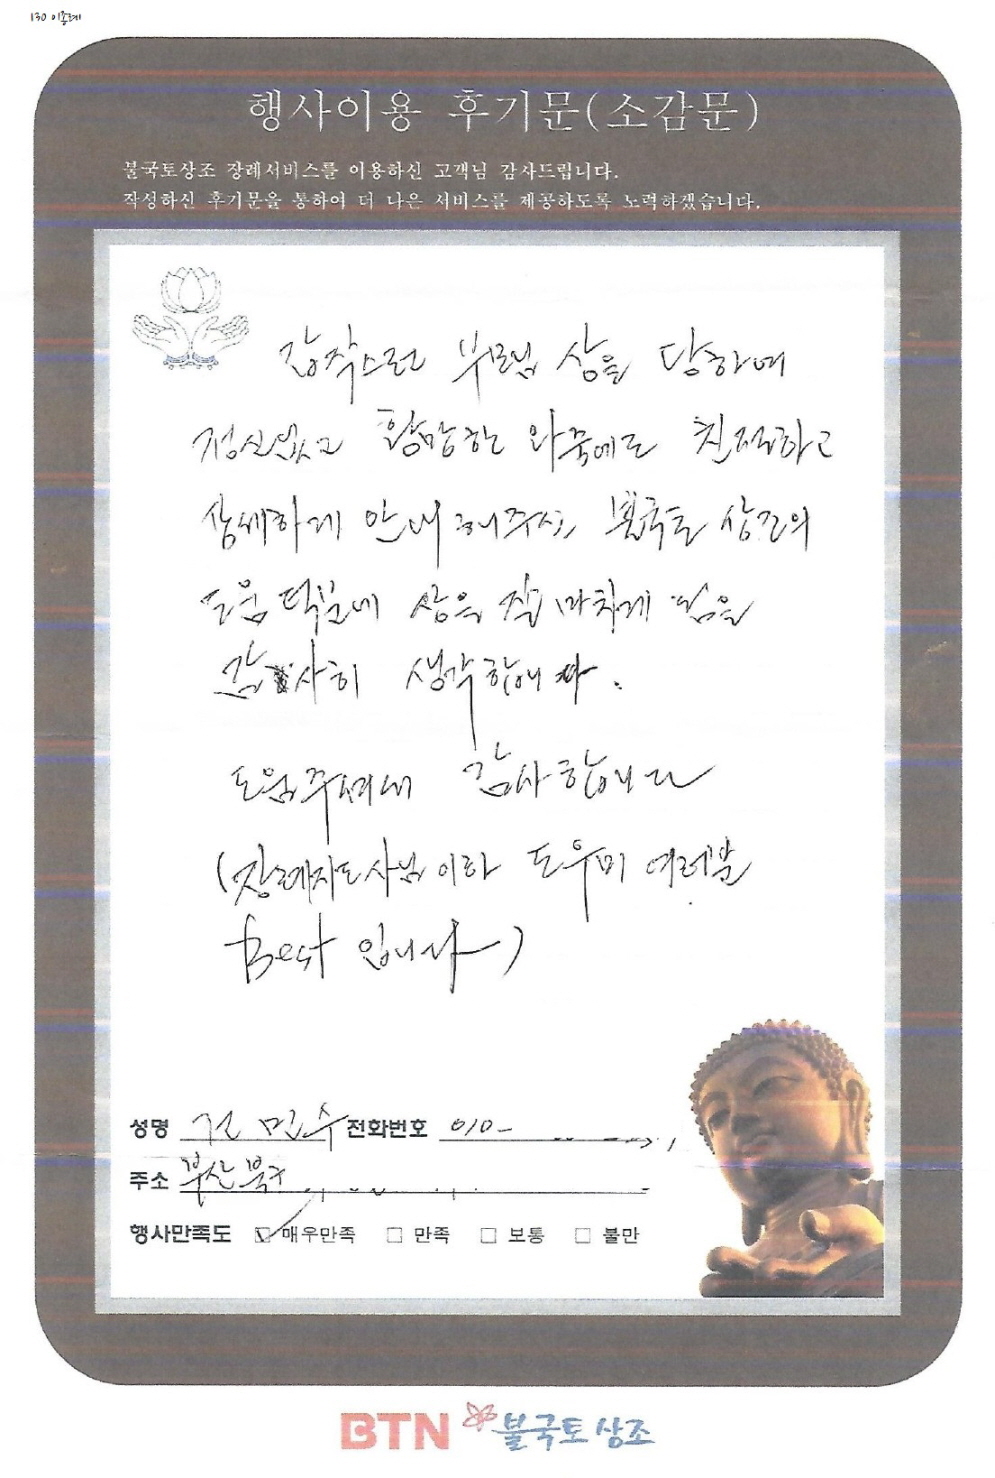 130 이종례
행사이용 후기문(소감문)
불국토상조 장례서비스를 이용하신 고객님 감사드립니다.
작성하신 후기문을 통하여 더 나은 서비스를 제공하도록 노력하겠습니다.
갑작스런 부모님 상을 당하여
정신없고 황망한 와중에도 친절하고
상세하게 안내 해주신 불국토 상조의
도움 덕분에 상을 잘 마치게 됨을
감사히 생각합니다.
도움주셔서 감사합니다
(장례지도사님 이하 도우미 여러분
Best 입니다)
성명 전민수 전화번호 010-
주소 부산 북구
행사만족도 매우만족 만족 보통 불만
BTN 불국토 상조